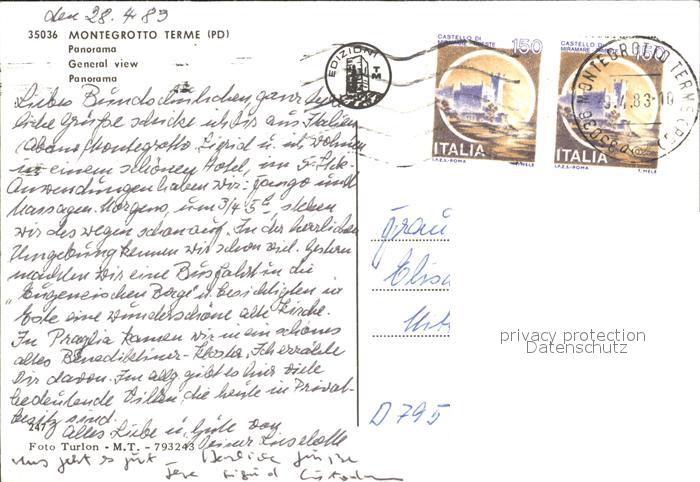 den 28. 4. 83
35036 MONTEGROTTO TERME (PD)
Panorama
General view
Panorama
EDIZIONI TM
CASTELLO DI
MIRAMARE TRIESTE 150
ITALIA
I.P.Z.S.-ROMA T. MELE
CASTELLO DI
MIRAMARE TRIESTE 150
ITALIA
I.P.Z.S.-ROMA T. MELE
35036 MONTEGROTTO TERME
.4.83-10
Liebes ganz
liche Grüße schicke ich dir aus Italien
(Abano/Montegrotto. Sigrid u. ich wohnen
in einem schönen Hotel, im
Anwendungen haben wir: Fango und
Massagen. Morgens, um 3/4 5h, stehen
wir deswegen schon auf. In der herrlichen
Umgebung kennen wir schon viel. Gestern
machten wir eine Busfahrt in die
"Eugeneischen Berge" u. besichtigten in
Este eine wunderschöne alte Kirche.
In Praglia kamen wir in ein schönes
altes Benediktiner-Kloster, Ich erzähle
Dir davon. Im allg. gibt es hier viele
bedeutende Villen, die heute in Privat-
besitz sind.
Alles Liebe u. Gute von
Deiner Liselotte
247
Foto Turlon - M.T. - 793243
uns geht es gut - Herzliche Grüße
Sigrid
Frau
Elis
D 795
privacy protection
Datenschutz